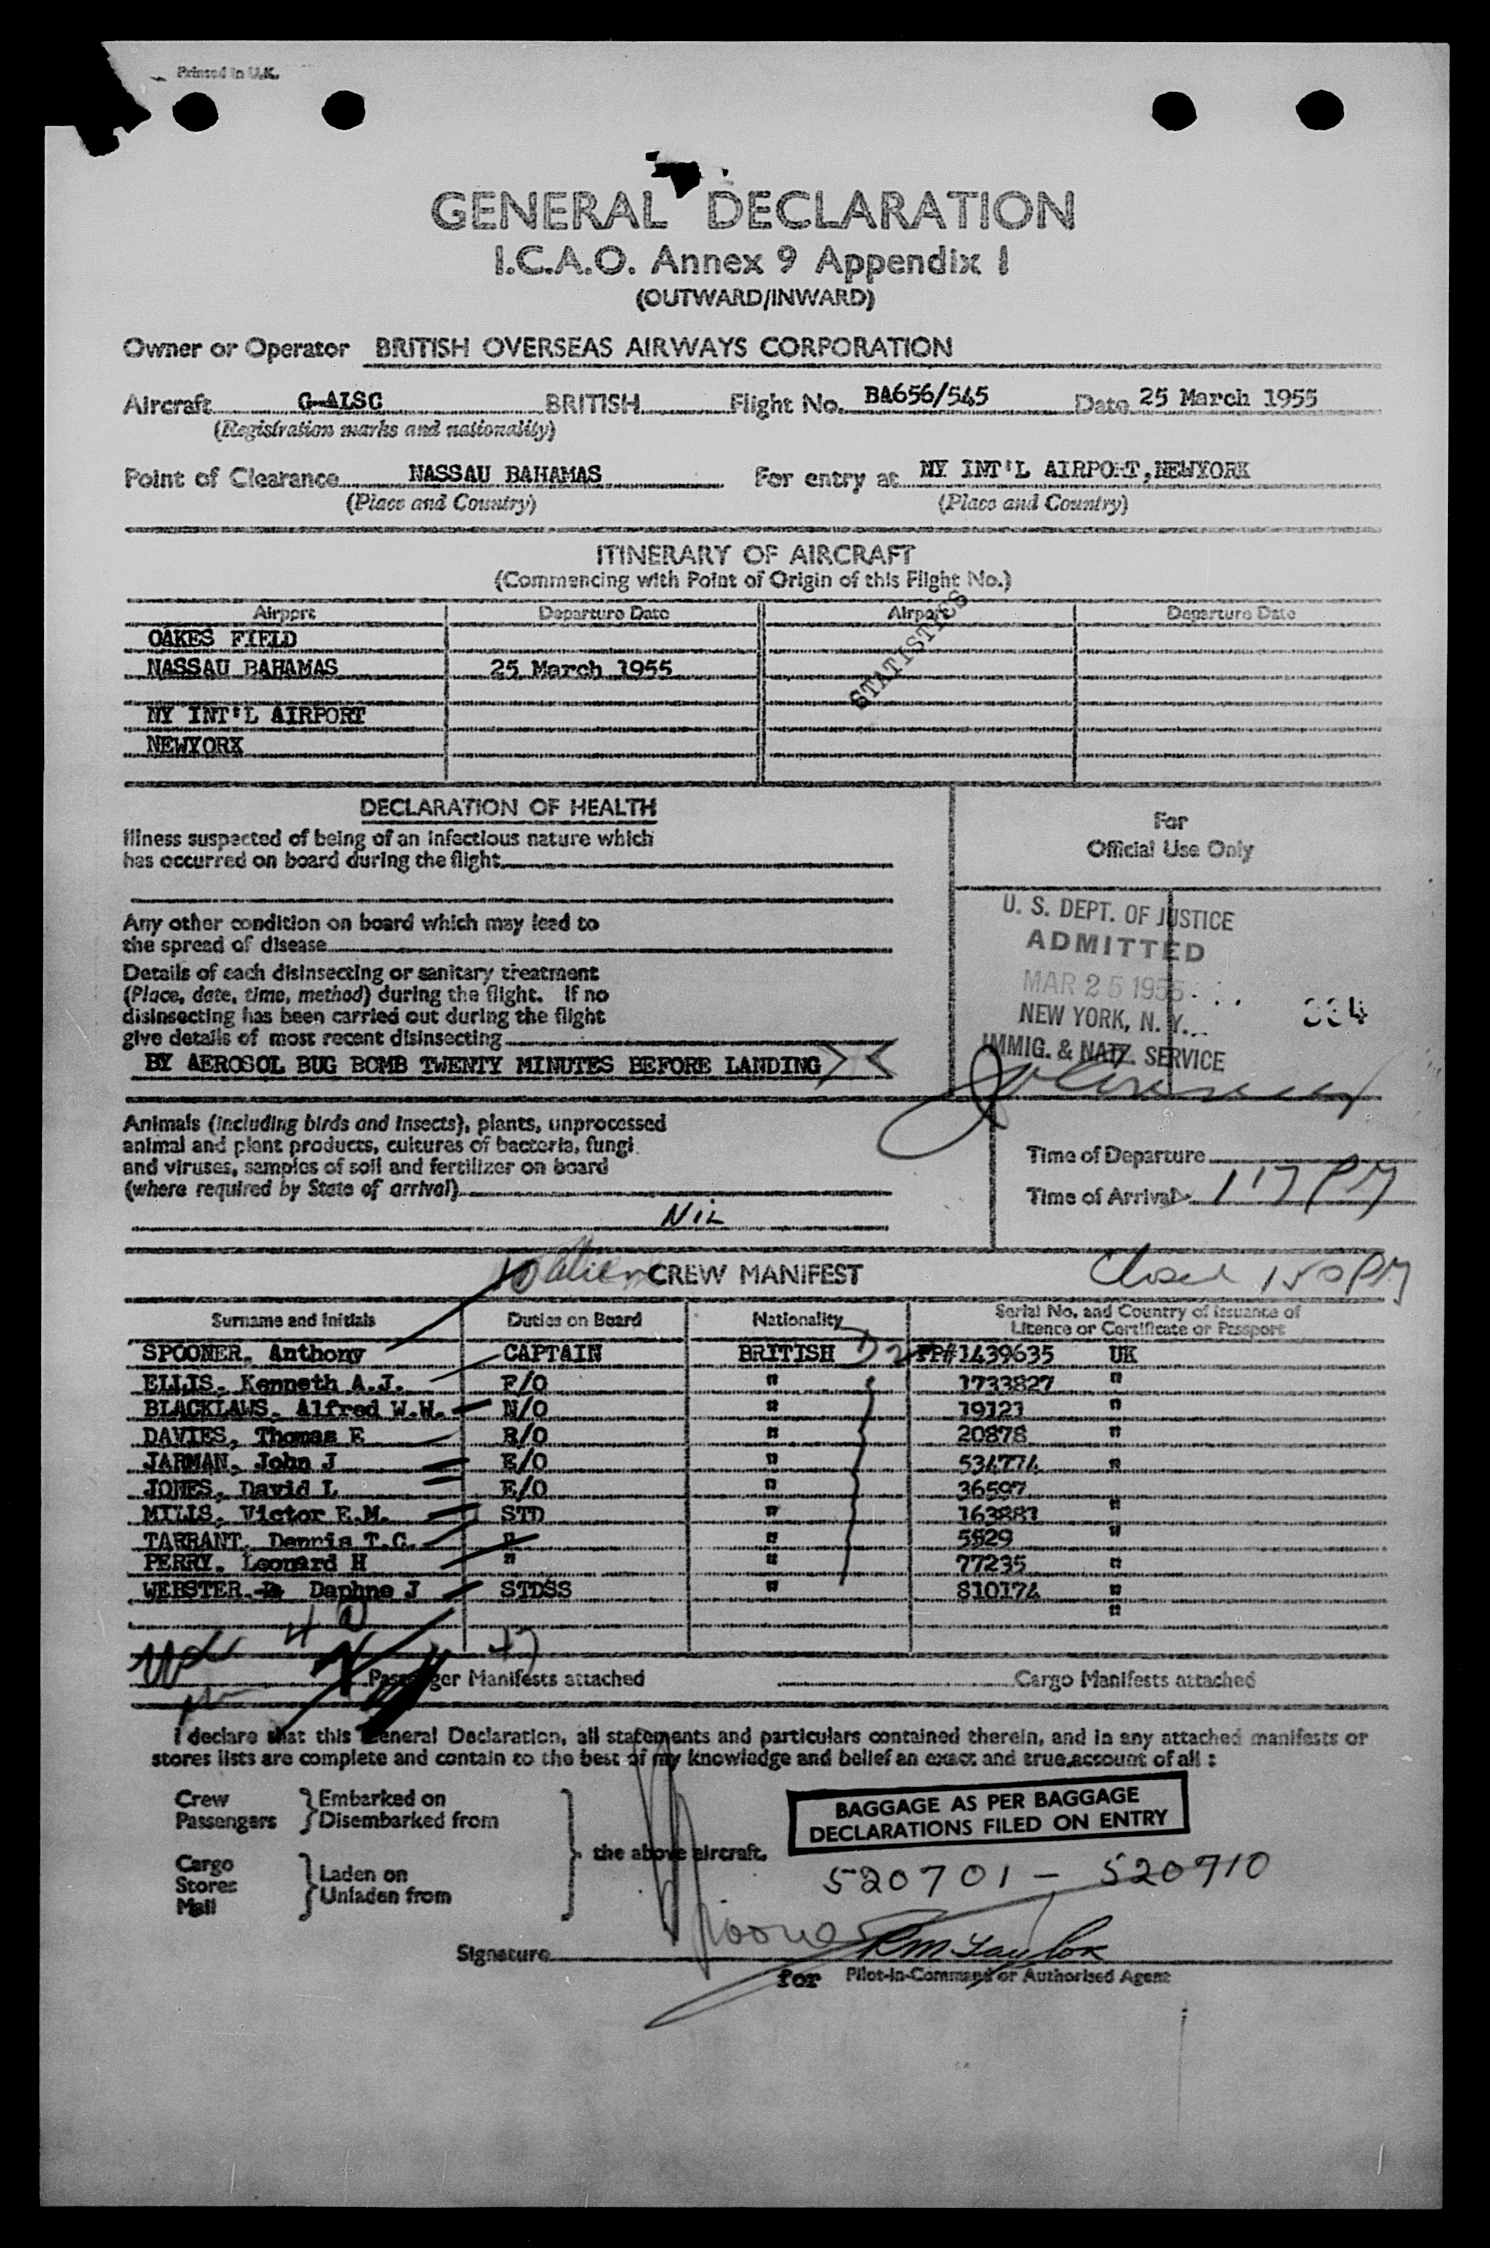 Printed in U.K.
GENERAL DECLARATION
I.C.A.O. Annex 9 Appendix I
(OUTWARD/INWARD)
Owner or Operator BRITISH OVERSEAS AIRWAYS CORPORATION
Aircraft G-ALSC BRITISH Flight No. BA656/545 Date 25 March 1955
(Registration marks and nationality)
Point of Clearance NASSAU BAHAMAS For entry at NY INT'L AIRPORT,NEWYORK
(Place and Country) (Place and Country)
ITINERARY OF AIRCRAFT
(Commencing with Point of Origin of this Flight No.)
Airport Departure Date Airport Departure Date
STATISTICS
OAKES FIELD
NASSAU BAHAMAS 25 March 1955
NY INT'L AIRPORT
NEWYORK
DECLARATION OF HEALTH
Illness suspected of being of an infectious nature which
has occurred on board during the flight
Any other condition on board which may lead to
the spread of disease
Details of each disinsecting or sanitary treatment
(Place, date, time, method) during the flight. If no
disinsecting has been carried out during the flight
give details of most recent disinsecting
BY AEROSOL BUG BOMB TWENTY MINUTES BEFORE LANDING
For
Official Use Only
U. S. DEPT. OF JUSTICE
ADMITTED
MAR 25 1955
334
NEW YORK, N. Y.
IMMIG. & NATZ. SERVICE
Animals (including birds and insects), plants, unprocessed
animal and plant products, cultures of bacteria, fungi
and viruses, samples of soil and fertilizer on board
(where required by State of arrival)
NIL
Time of Departure
Time of Arrival 117 PM
10 alien CREW MANIFEST Closed 150 PM
Surname and Initials Duties on Board Nationality Serial No. and Country of Issuance of
Licence or Certificate or Passport
SPOONER. Anthony CAPTAIN BRITISH D2 PP#1439635 UK
ELLIS. Kenneth A.J. F/O " 1733827 "
BLACKLAWS. Alfred W.W. N/O " 19121 "
DAVIES, Thomas E R/O " 20878 "
JARMAN. John J E/O " 534774 "
JONES, David L E/O " 36597
MILLS, Victor E.M. STD " 163881 "
TARRANT. Dennis T.C. " " 5529 "
PERRY. Leonard H " " 77235 "
WEBSTER. Daphne J STDSS " 810174 "
"
47
Passenger Manifests attached Cargo Manifests attached
I declare that this General Declaration, all statements and particulars contained therein, and in any attached manifests or
stores lists are complete and contain to the best of my knowledge and belief an exact and true account of all :
Crew Embarked on
Passengers Disembarked from
the above aircraft.
Cargo Laden on
Stores Unladen from
Mail
BAGGAGE AS PER BAGGAGE
DECLARATIONS FILED ON ENTRY
520701 - 520710
Spooner
Signature RM Taylor
for Pilot-in-Command or Authorised Agent